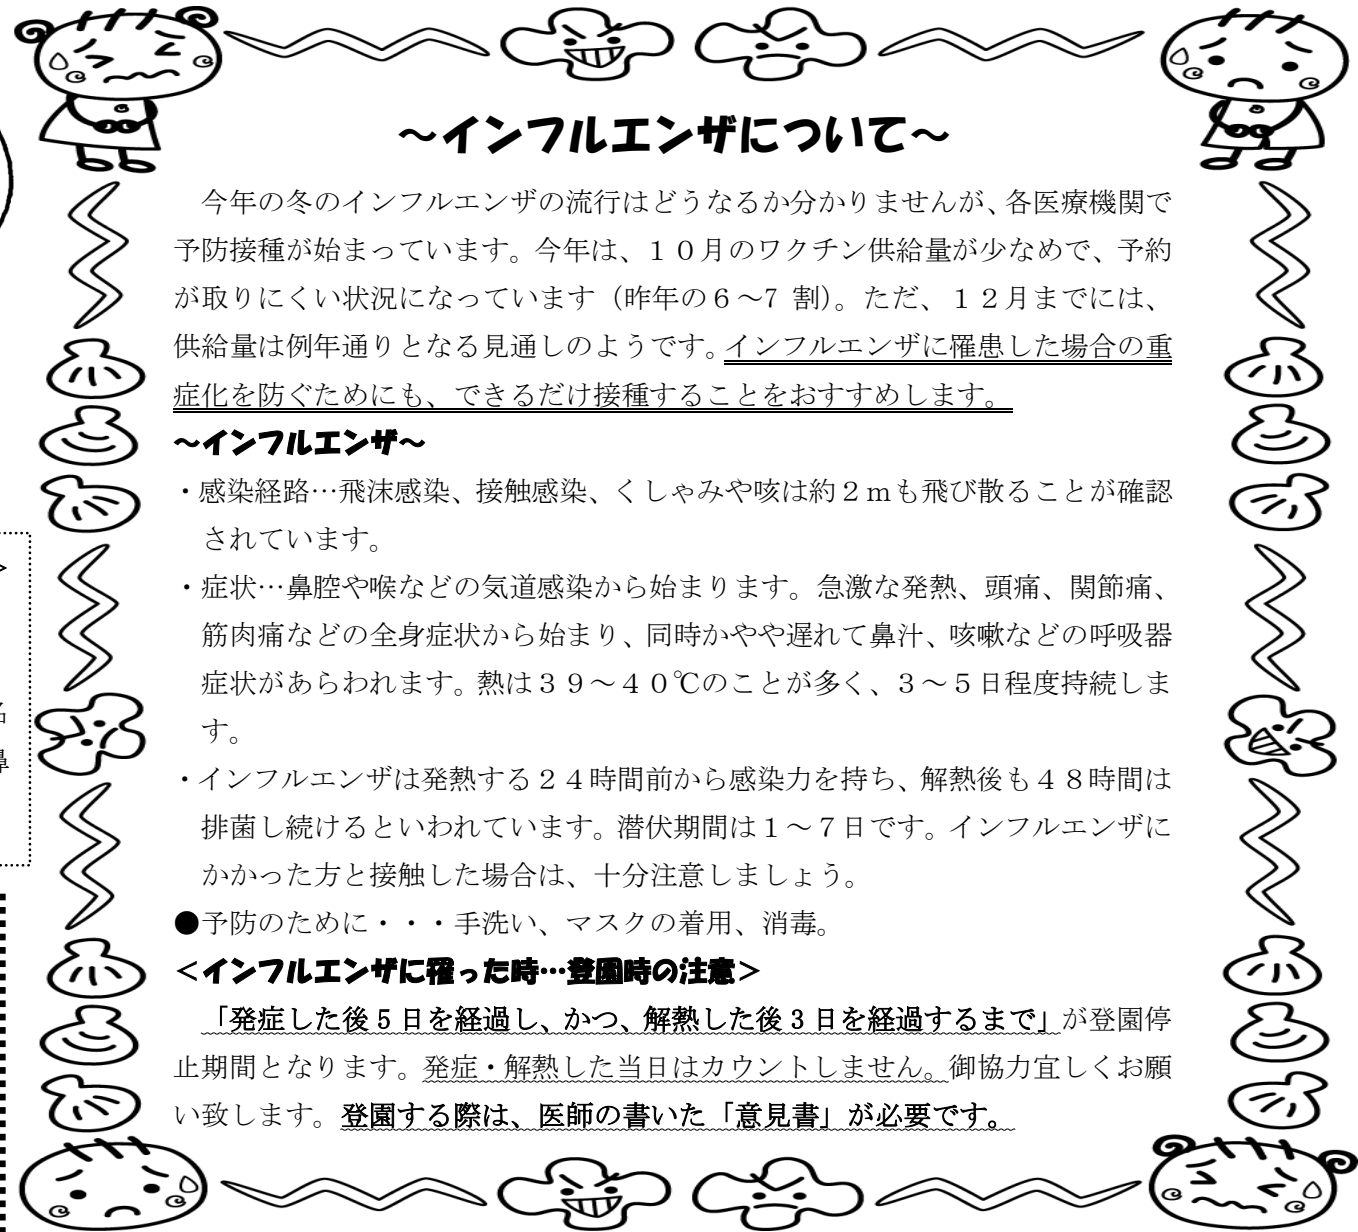 ～インフルエンザについて～
今年の冬のインフルエンザの流行はどうなるか分かりませんが、各医療機関で
予防接種が始まっています。今年は、１０月のワクチン供給量が少なめで、予約
が取りにくい状況になっています（昨年の６～7 割）。ただ、１２月までには、
供給量は例年通りとなる見通しのようです。インフルエンザに罹患した場合の重
症化を防ぐためにも、できるだけ接種することをおすすめします。
～インフルエンザ～
・感染経路…飛沫感染、接触感染、くしゃみや咳は約２ｍも飛び散ることが確認
されています。
・症状…鼻腔や喉などの気道感染から始まります。急激な発熱、頭痛、関節痛、
筋肉痛などの全身症状から始まり、同時かやや遅れて鼻汁、咳嗽などの呼吸器
症状があらわれます。熱は３９～４０℃のことが多く、３～５日程度持続しま
す。
・インフルエンザは発熱する２４時間前から感染力を持ち、解熱後も４８時間は
排菌し続けるといわれています。潜伏期間は１～７日です。インフルエンザに
かかった方と接触した場合は、十分注意しましょう。
●予防のために・・・手洗い、マスクの着用、消毒。
＜インフルエンザに罹った時…登園時の注意＞
「発症した後 5 日を経過し、かつ、解熱した後 3 日を経過するまで」が登園停
止期間となります。発症・解熱した当日はカウントしません。御協力宜しくお願
い致します。登園する際は、医師の書いた「意見書」が必要です。